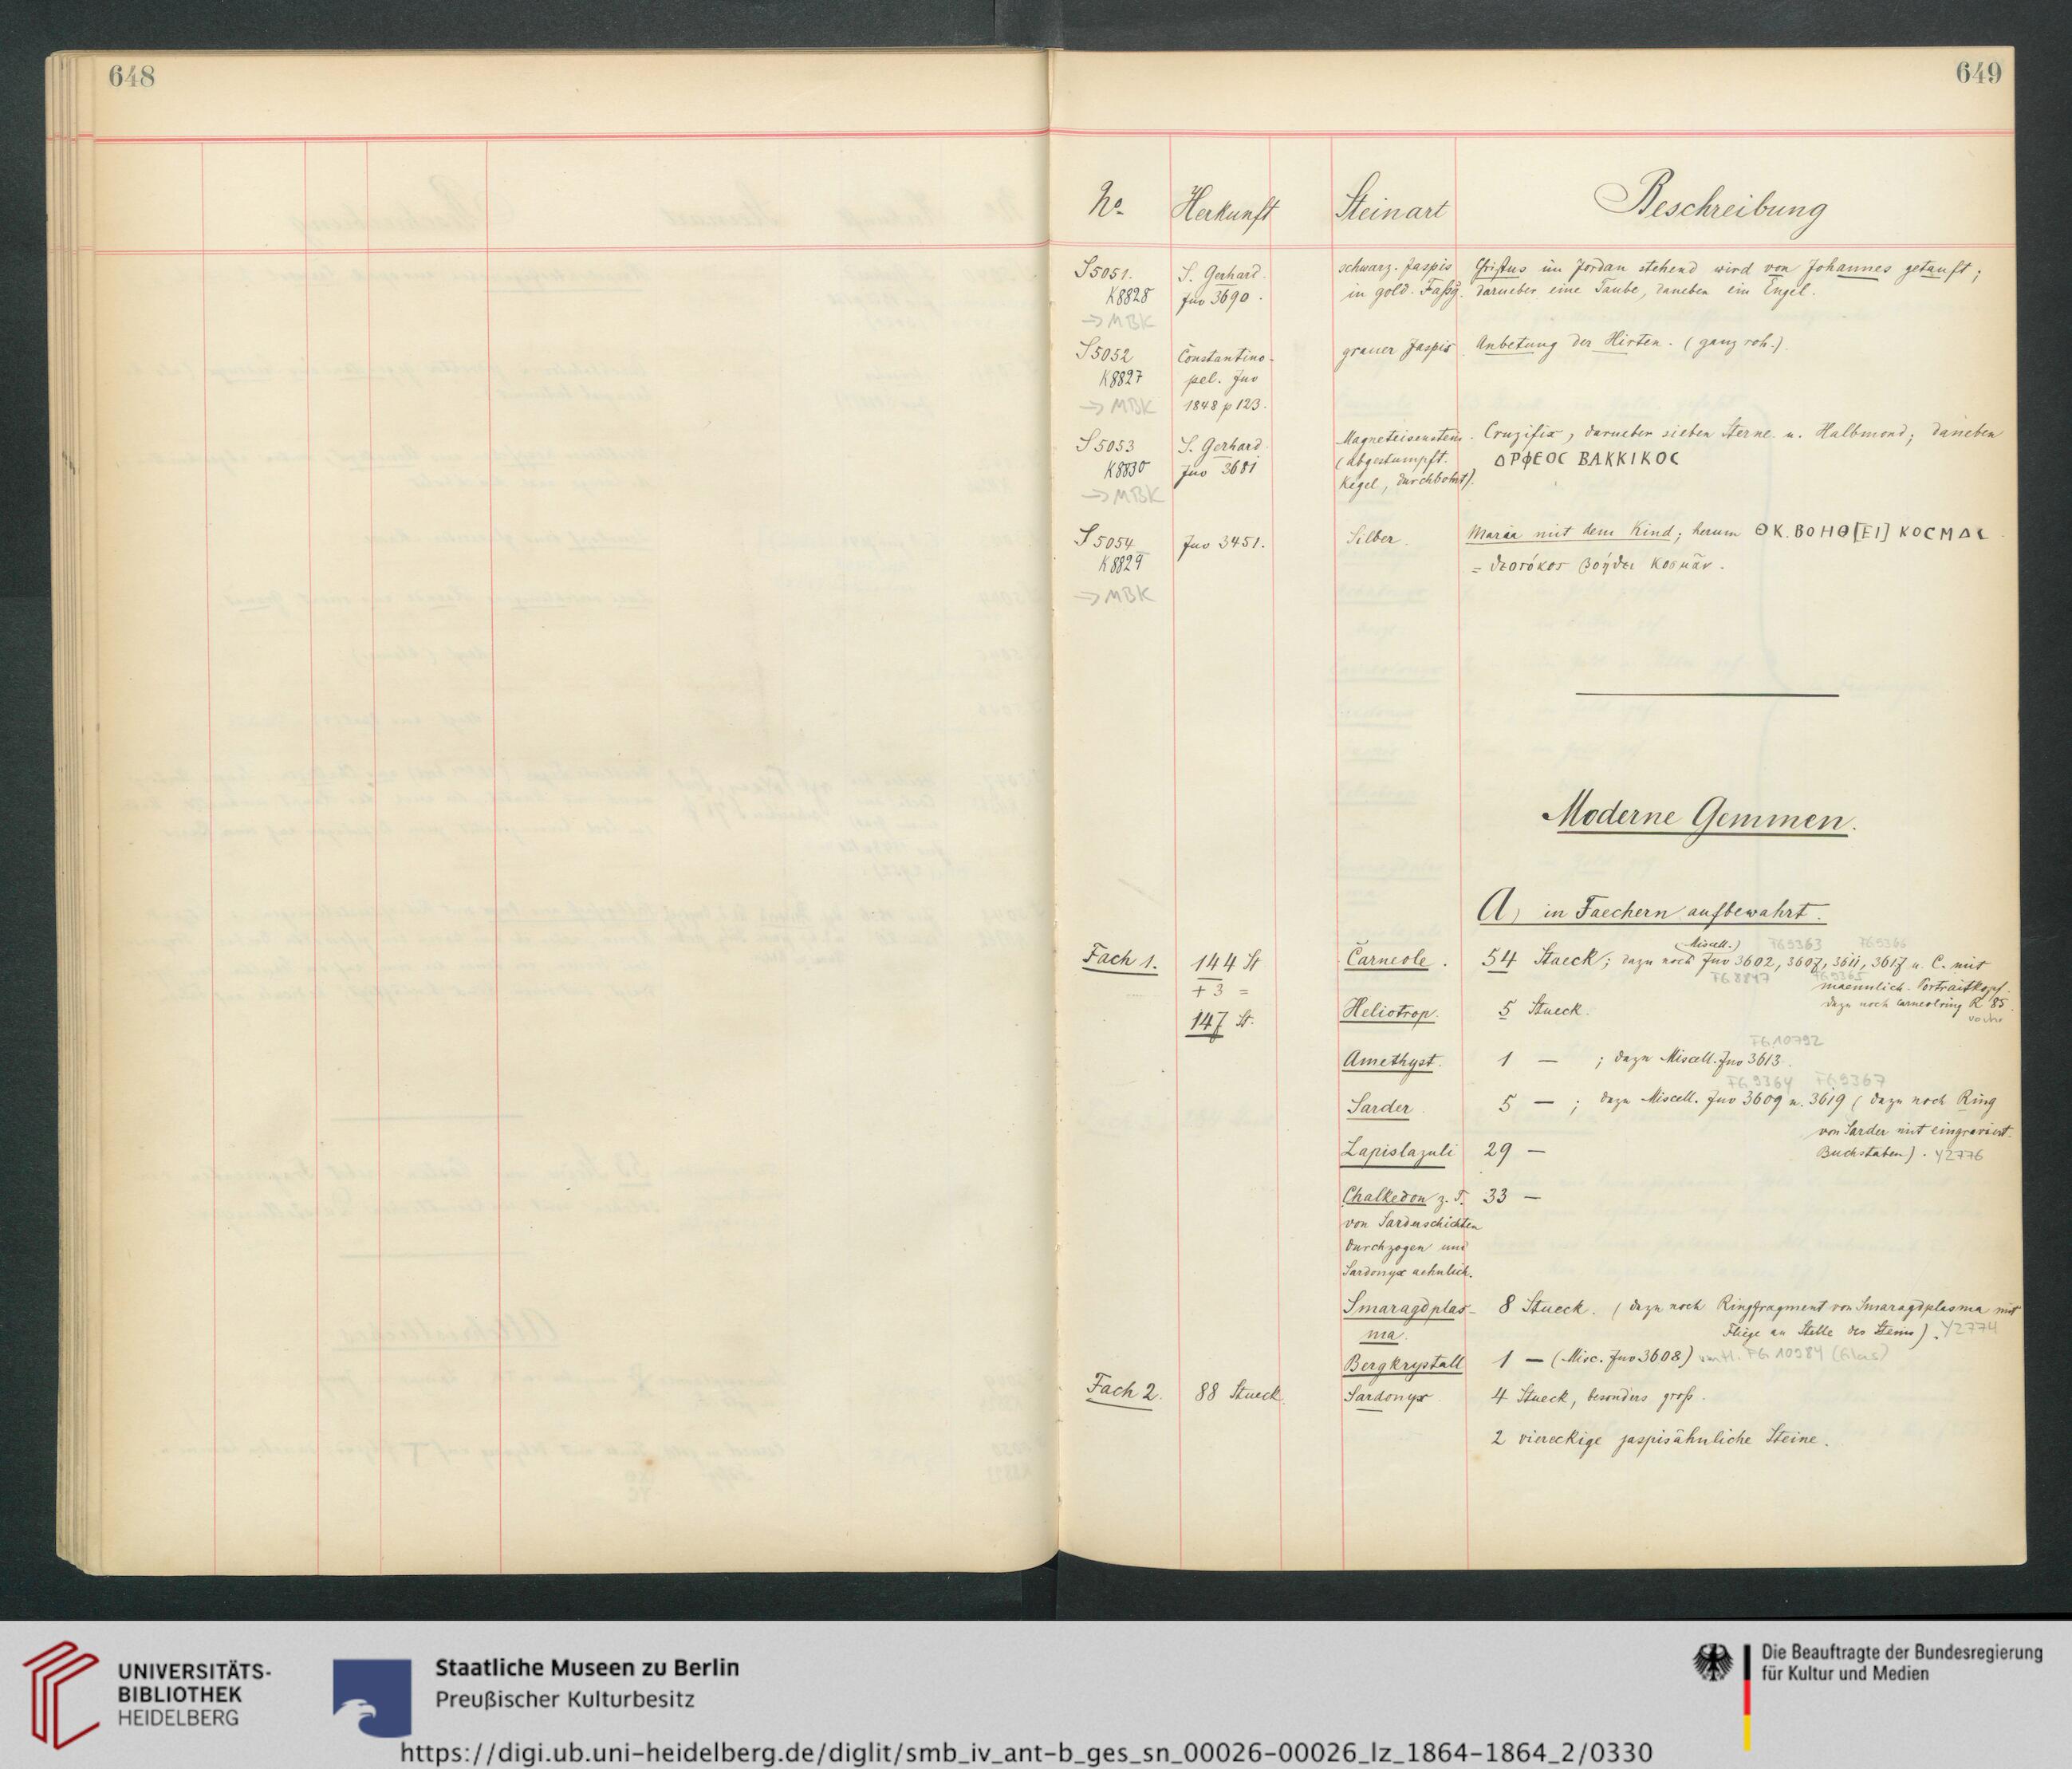 648
649
No. Herkunft Steinart Beschreibung
S5051. S. Gerhard. schwarz. Jaspis Christus im Jordan stehend wird von Johannes getauft;
K8828 Jnv 3690. in gold. Faßg. darueber eine Taube, daneben ein Engel.
→ MBK
S5052 Constantino- grauer Jaspis Anbetung der Hirten. (ganz roh.).
K8827 pel. Jnv
→ MBK 1848 p 123.
S5053 S. Gerhard. Magneteisenstein. Cruzifix, darueber sieben Sterne u. Halbmond; daneben
K8830 Jnv 3681 (abgestumpft. ΟΡΦΕΟC ΒΑΚΚΙΚΟC
→ MBK Kegel, durchbohrt).
S5054 Jnv 3451. Silber. Maria mit dem Kind; herum ΘΚ. ΒΟΗΘ[ΕΙ] ΚΟCΜΑC
K8829 = θεοτόκος βοήθει Κοσμᾶν.
→ MBK
Moderne Gemmen.
A) in Faechern aufbewahrt.
(Miscell.) FG9363 FG9366
Fach 1. 144 St Carneole. 54 Stueck; dazu noch Jnv 3602, 3607, 3611, 3617 u. C. mit
FG8847 FG9365
+ 3 = maennlich. Portraitkopf.
dazu noch Carneolring R 85.
147 St. Heliotrop. 5 Stueck.
FG10792
Amethyst. 1 — ; dazu Miscell. Jnv 3613.
FG9364 FG9367
Sarder. 5 — ; dazu Miscell. Jnv 3609 u. 3619 (dazu noch Ring
von Sarder mit eingraviert.
Lapislazuli 29 — Buchstaben). Y2776
Chalkedon z. T. 33 —
von Sarderschichten
durchzogen und
Sardonyx aehnlich.
Smaragdplas- 8 Stueck. (dazu noch Ringfragment von Smaragdplasma mit
ma. Fliege an Stelle des Steins). Y2774
Bergkrystall 1 — (Misc. Jnv 3608) FG 10984 (Glas)
Fach 2. 88 Stueck. Sardonyx 4 Stueck, besonders groß.
2 viereckige jaspisähnliche Steine.
UNIVERSITÄTS-
BIBLIOTHEK
HEIDELBERG
Staatliche Museen zu Berlin
Preußischer Kulturbesitz
Die Beauftragte der Bundesregierung
für Kultur und Medien
https://digi.ub.uni-heidelberg.de/diglit/smb_iv_ant-b_ges_sn_00026-00026_lz_1864-1864_2/0330